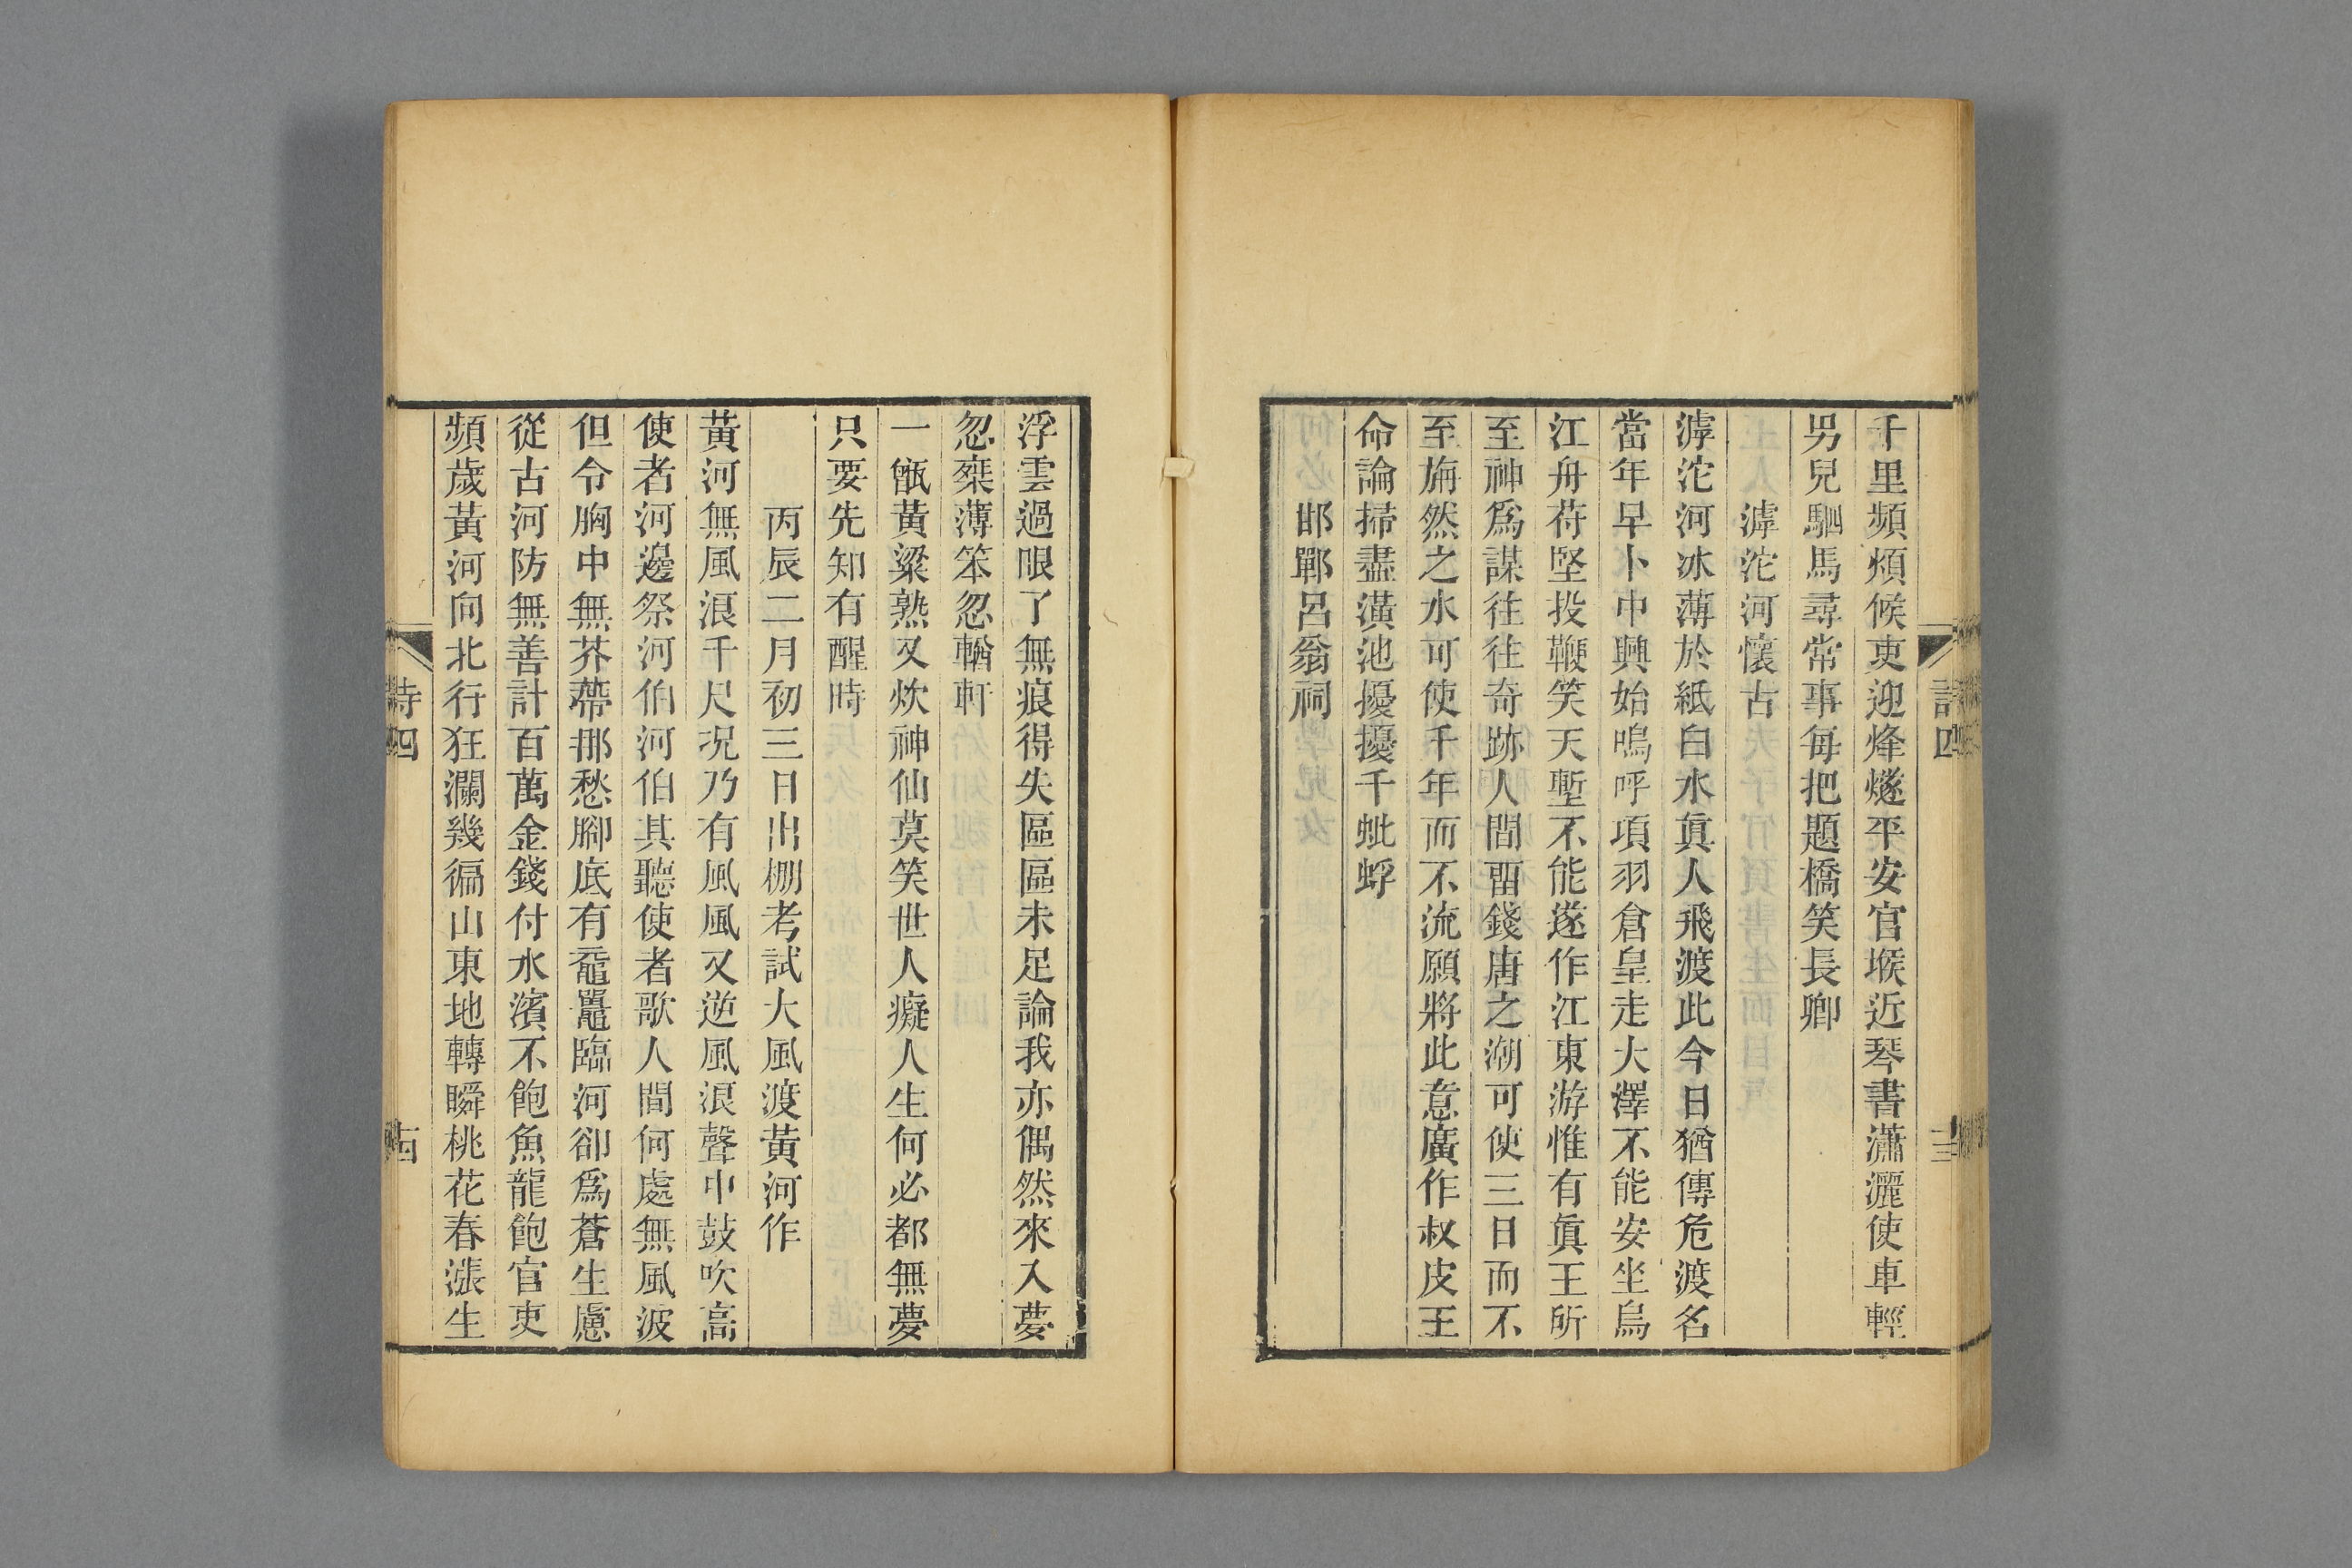 千里頻煩候吏迎烽燧平安官堠近琴書瀟灑使車輕
男兒駟馬尋常事每把題橋笑長卿
滹沱河懷古
滹沱河冰薄於紙白水眞人飛渡此今日猶傳危渡名
當年早卜中興始嗚呼項羽倉皇走大澤不能安坐烏
江舟苻堅投鞭笑天塹不能遂作江東游惟有眞王所
至神爲謀往往奇跡人間畱錢唐之潮可使三日而不
至旃然之水可使千年而不流願將此意廣作叔皮王
命論掃盡潢池擾擾千蚍蜉
邯鄲呂翁祠
浮雲過眼了無痕得失區區未足論我亦偶然來入夢
忽乘薄笨忽輶軒
一甑黃粱熟又炊神仙莫笑世人癡人生何必都無夢
只要先知有醒時
丙辰二月初三日出棚考試大風渡黃河作
黃河無風浪千尺况乃有風風又逆風浪聲中鼓吹高
使者河邊祭河伯河伯其聽使者歌人間何處無風波
但令胸中無芥蔕挪愁腳底有黿鼉臨河卻爲蒼生慮
從古河防無善計百萬金錢付水濱不飽魚龍飽官吏
頻歲黃河向北行狂瀾幾徧山東地轉瞬桃花春漲生
詩四
十四